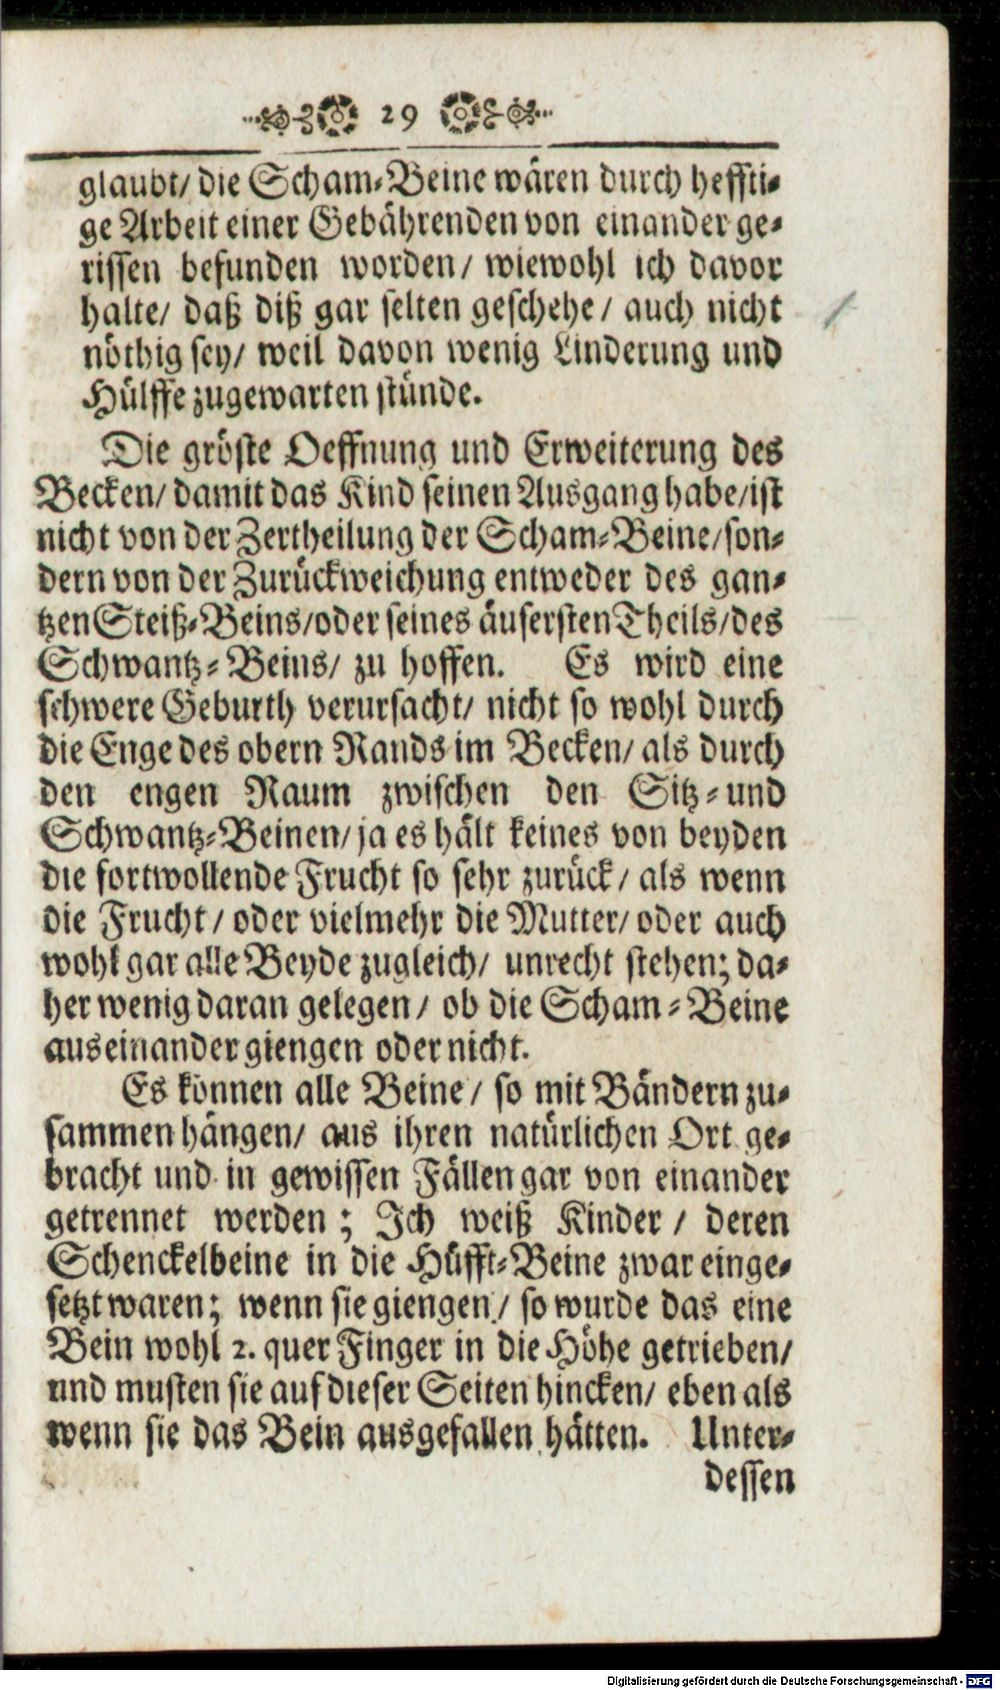 29
glaubt/ die Scham-Beine wären durch heffti-
ge Arbeit einer Gebährenden von einander ge-
rissen befunden worden/ wiewohl ich davor
halte/ daß diß gar selten geschehe/ auch nicht
nöthig sey/ weil davon wenig Linderung und
Hülffe zugewarten stünde.
Die gröste Oeffnung und Erweiterung des
Becken/ damit das Kind seinen Ausgang habe/ ist
nicht von der Zertheilung der Scham-Beine/ son-
dern von der Zurückweichung entweder des gan-
tzen Steiß-Beins/ oder seines äusersten Theils/ des
Schwantz-Beins/ zu hoffen. Es wird eine
schwere Geburth verursacht/ nicht so wohl durch
die Enge des obern Rands im Becken/ als durch
den engen Raum zwischen den Sitz- und
Schwantz-Beinen/ ja es hält keines von beyden
die fortwollende Frucht so sehr zurück/ als wenn
die Frucht/ oder vielmehr die Mutter/ oder auch
wohl gar alle Beyde zugleich/ unrecht stehen; da-
her wenig daran gelegen/ ob die Scham-Beine
auseinander giengen oder nicht.
Es können alle Beine/ so mit Bändern zu-
sammen hängen/ aus ihren natürlichen Ort ge-
bracht und in gewissen Fällen gar von einander
getrennet werden; Ich weiß Kinder/ deren
Schenckelbeine in die Hüfft-Beine zwar einge-
setzt waren; wenn sie giengen/ so wurde das eine
Bein wohl 2. quer Finger in die Höhe getrieben/
und musten sie auf dieser Seiten hincken/ eben als
wenn sie das Bein ausgefallen hätten. Unter-
dessen
Digitalisierung gefördert durch die Deutsche Forschungsgemeinschaft - DFG